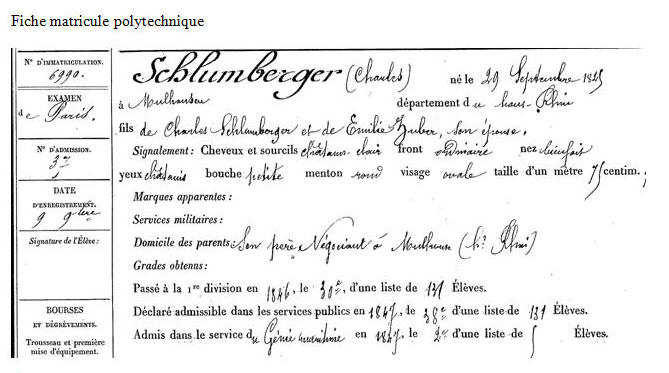 Fiche matricule polytechnique
N° D'IMMATRICULATION.
6990.
EXAMEN
de Paris.
N° D'ADMISSION.
37
DATE
D'ENREGISTREMENT.
9 9bre
Signature de l'Élève:
BOURSES
ET DÉGRÈVEMENTS.
Trousseau et première
mise d'équipement.
Schlumberger (Charles) né le 29 Septembre 1825
à Mulhausen département du haut-Rhin
fils de Charles Schlumberger et de Emilie Huber, son épouse.
Signalement: Cheveux et sourcils châtains-clair front ordinaire nez bienfait
yeux châtains bouche petite menton rond visage ovale taille d'un mètre 75 centim.
Marques apparentes:
Services militaires:
Domicile des parents: Son père Négociant à Mulhouse (ht Rhin)
Grades obtenus:
Passé à la 1re division en 1846, le 30e, d'une liste de 131 Élèves.
Déclaré admissible dans les services publics en 1847, le 38e d'une liste de 131 Élèves.
Admis dans le service du Génie maritime en 1847, le 2e d'une liste de 5 Élèves.